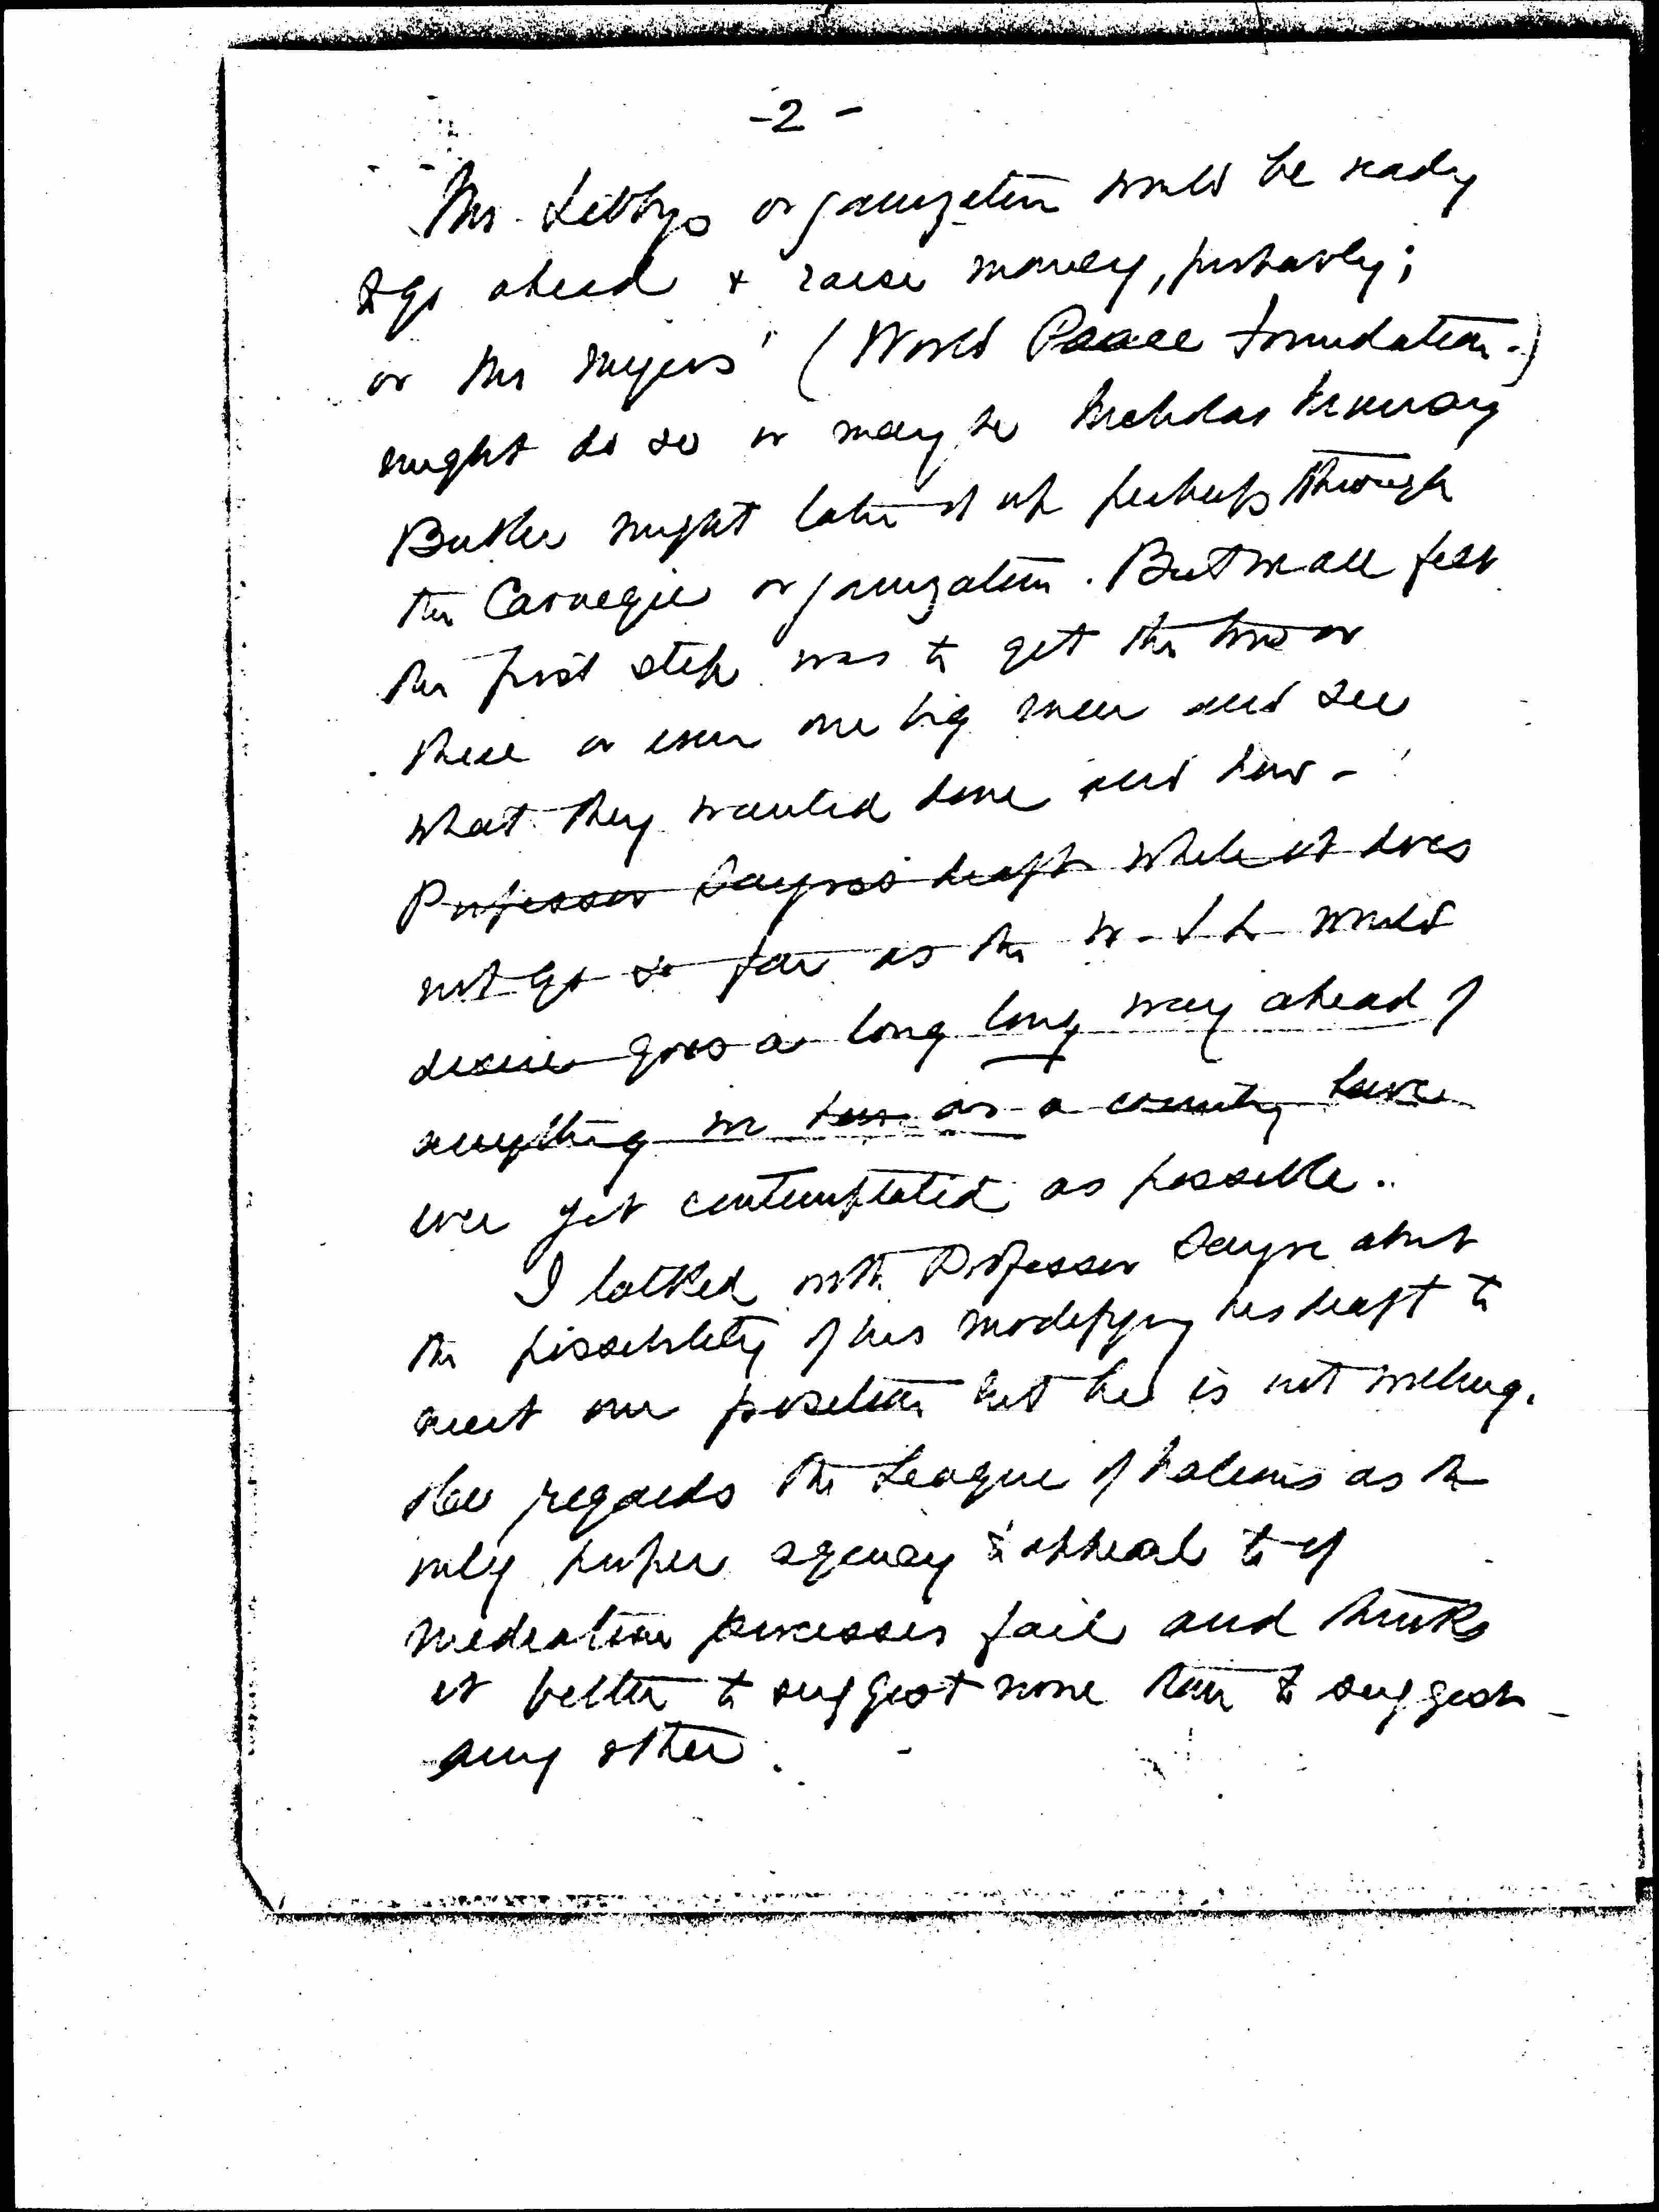 -2-
Mr. Libby's organization would be ready
to go ahead & raise money, probably;
or Mr Myers' (World Peace Foundation.)
might do so or maybe Nicholas Murray
Butler might take it up perhaps through
the Carnegie organization. But we all felt
the first step was to get the two or
three or even one big men and see
what they wanted done and how -
Professor Sayre's draft while it does
not go so far as the W.I.L. would
desire goes a long long way ahead of
anything we as a country have
ever yet contemplated as possible.
I talked with Professor Sayre about
the possibility of his modifying his draft to
meet our position but he is not willing.
He regards the League of Nations as the
only proper agency to appeal to if
mediation processes fail and thinks
it better to suggest none than to suggest
any other.